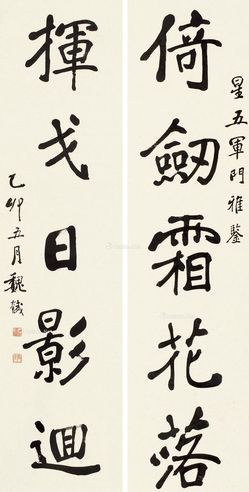 星五軍門雅鑒
倚劔霜花落
揮戈日影迴
乙卯五月魏戫